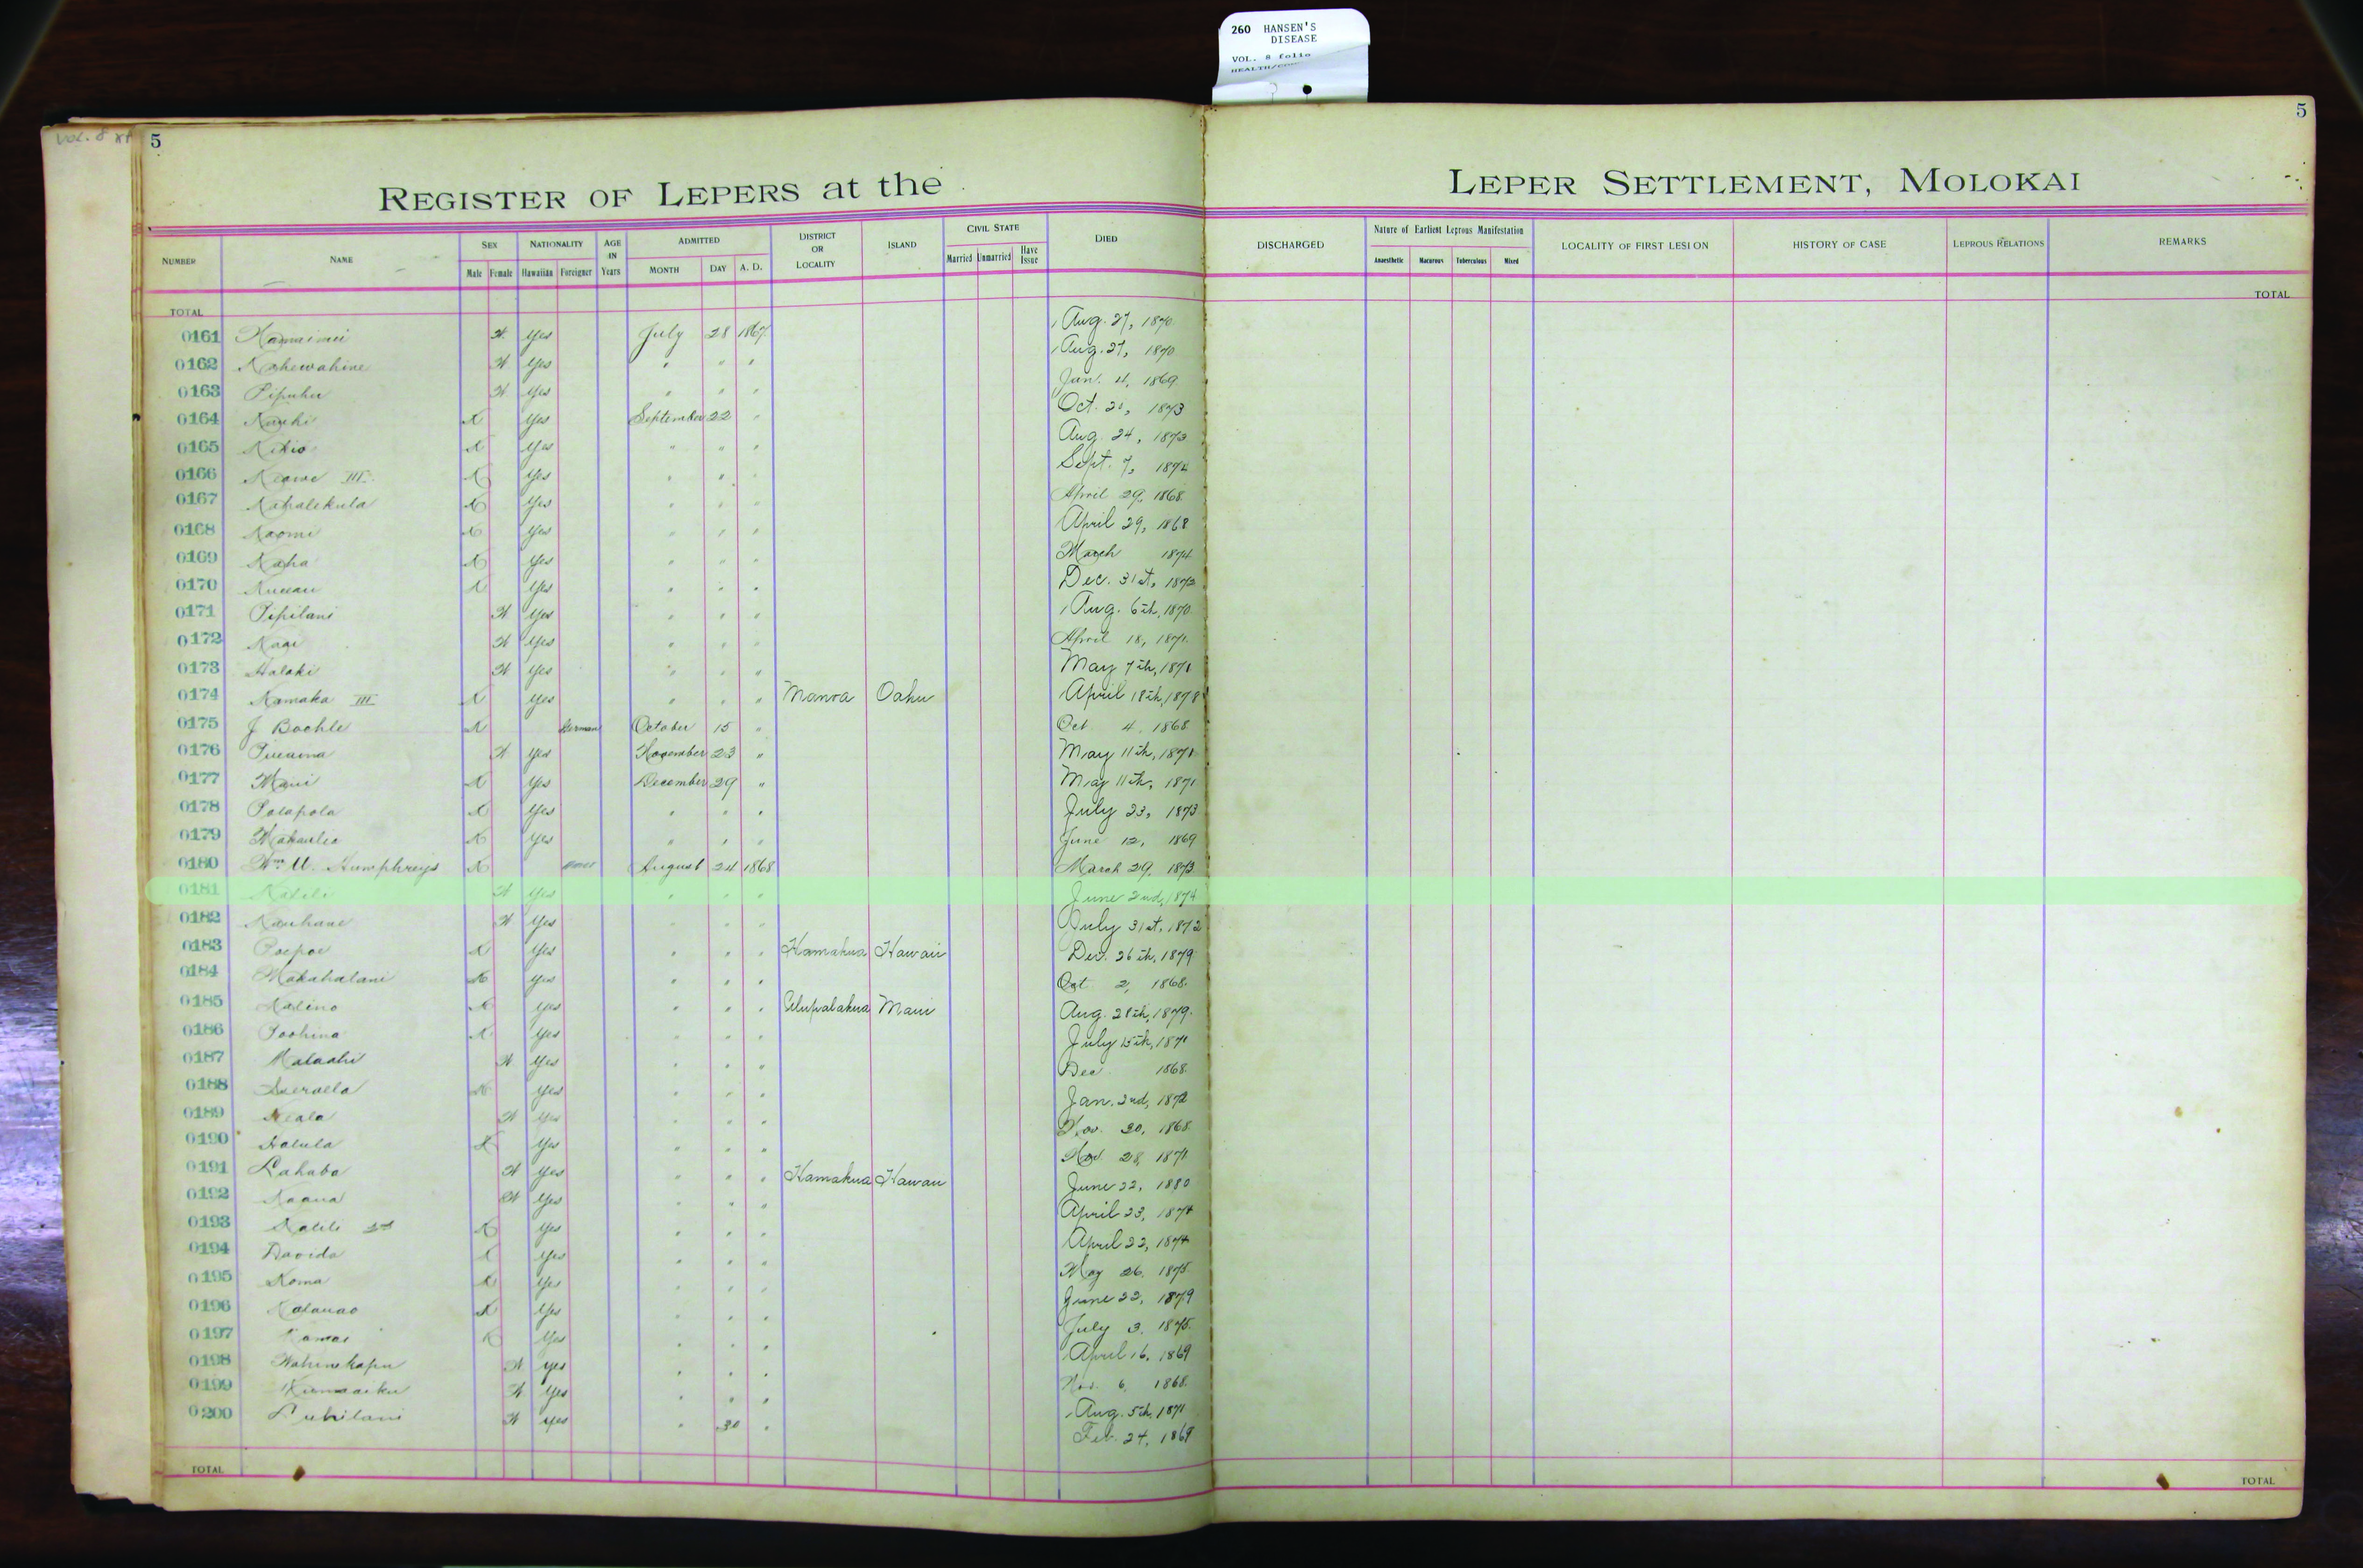 260 HANSEN'S
DISEASE
VOL. 8 folio
Vol. 8
5
5
REGISTER OF LEPERS at the LEPER SETTLEMENT, MOLOKAI
NUMBER NAME SEX Male Female NATIONALITY Hawaiian Foreigner AGE IN Years ADMITTED MONTH DAY A. D. DISTRICT OR LOCALITY ISLAND CIVIL STATE Married Unmarried Have Issue DIED DISCHARGED Nature of Earliest Leprous Manifestation Anaesthetic Macurous Tuberculous Mixed LOCALITY OF FIRST LESION HISTORY OF CASE LEPROUS RELATIONS REMARKS
TOTAL TOTAL
0161 Yes July 28 1867 Aug. 27, 1870
0162 Kahewahine Yes " " " Aug. 27, 1870
0163 Pipuhu Yes " " " Jan. 4, 1869
0164 Yes September 22 " Oct. 1873
0165 Kikio X Yes " " " Aug. 24, 1873
0166 Keawe III X Yes " " " Sept. 7, 1874
0167 X Yes " " " April 29, 1868
0168 Naomi X Yes " " " April 29, 1868
0169 Kaha X Yes " " " March 1874
0170 X Yes " " " Dec. 31st, 1873
0171 Pipilani Yes " " " Aug. 6th, 1870
0172 Yes " " " April 18, 1871
0173 Halaki Yes " " " May 7th, 1871
0174 Kamaka III X Yes " " " Manoa Oahu April 18th, 1878
0175 J Bochle X German October 15 " Oct 4, 1868
0176 Yes November 23 " May 11th, 1871
0177 Maui X Yes December 29 " May 11th, 1871
0178 Polapola X Yes " " " July 23, 1873
0179 X Yes " " " June 12, 1869
0180 Wm Humphreys X August 24 1868 March 29, 1873
0181 Kalili Yes " " " June 2nd, 1874
0182 Kauhane Yes " " " July 31st, 1872
0183 Poepoe X Yes " " " Hamakua Hawaii Dec. 26th, 1879
0184 Makahalani X Yes " " " Oct 2, 1868
0185 Kalino X Yes " " " Ulupalakua Maui Aug. 28th, 1879
0186 Poohina X Yes " " " July 15th, 1871
0187 Yes " " " Dec 1868
0188 X Yes " " " Jan. 2nd, 1872
0189 Keala Yes " " " Nov. 30, 1868
0190 Halula X Yes " " " Nov. 28, 1871
0191 Yes " " " Hamakua Hawaii June 22, 1880
0192 Kaaua Yes " " " April 23, 1874
0193 Kalili 2nd X Yes " " " April 22, 1874
0194 Davida X Yes " " " May 26, 1875
0195 Koma X Yes " " " June 22, 1879
0196 Kalauao X Yes " " " July 3, 1875
0197 Kamai X Yes " " " April 16, 1869
0198 Wahinekapu Yes " " " Nov. 6, 1868
0199 Yes " " " Aug. 5th, 1871
0200 Yes " 30 " Feb. 24, 1869
TOTAL TOTAL